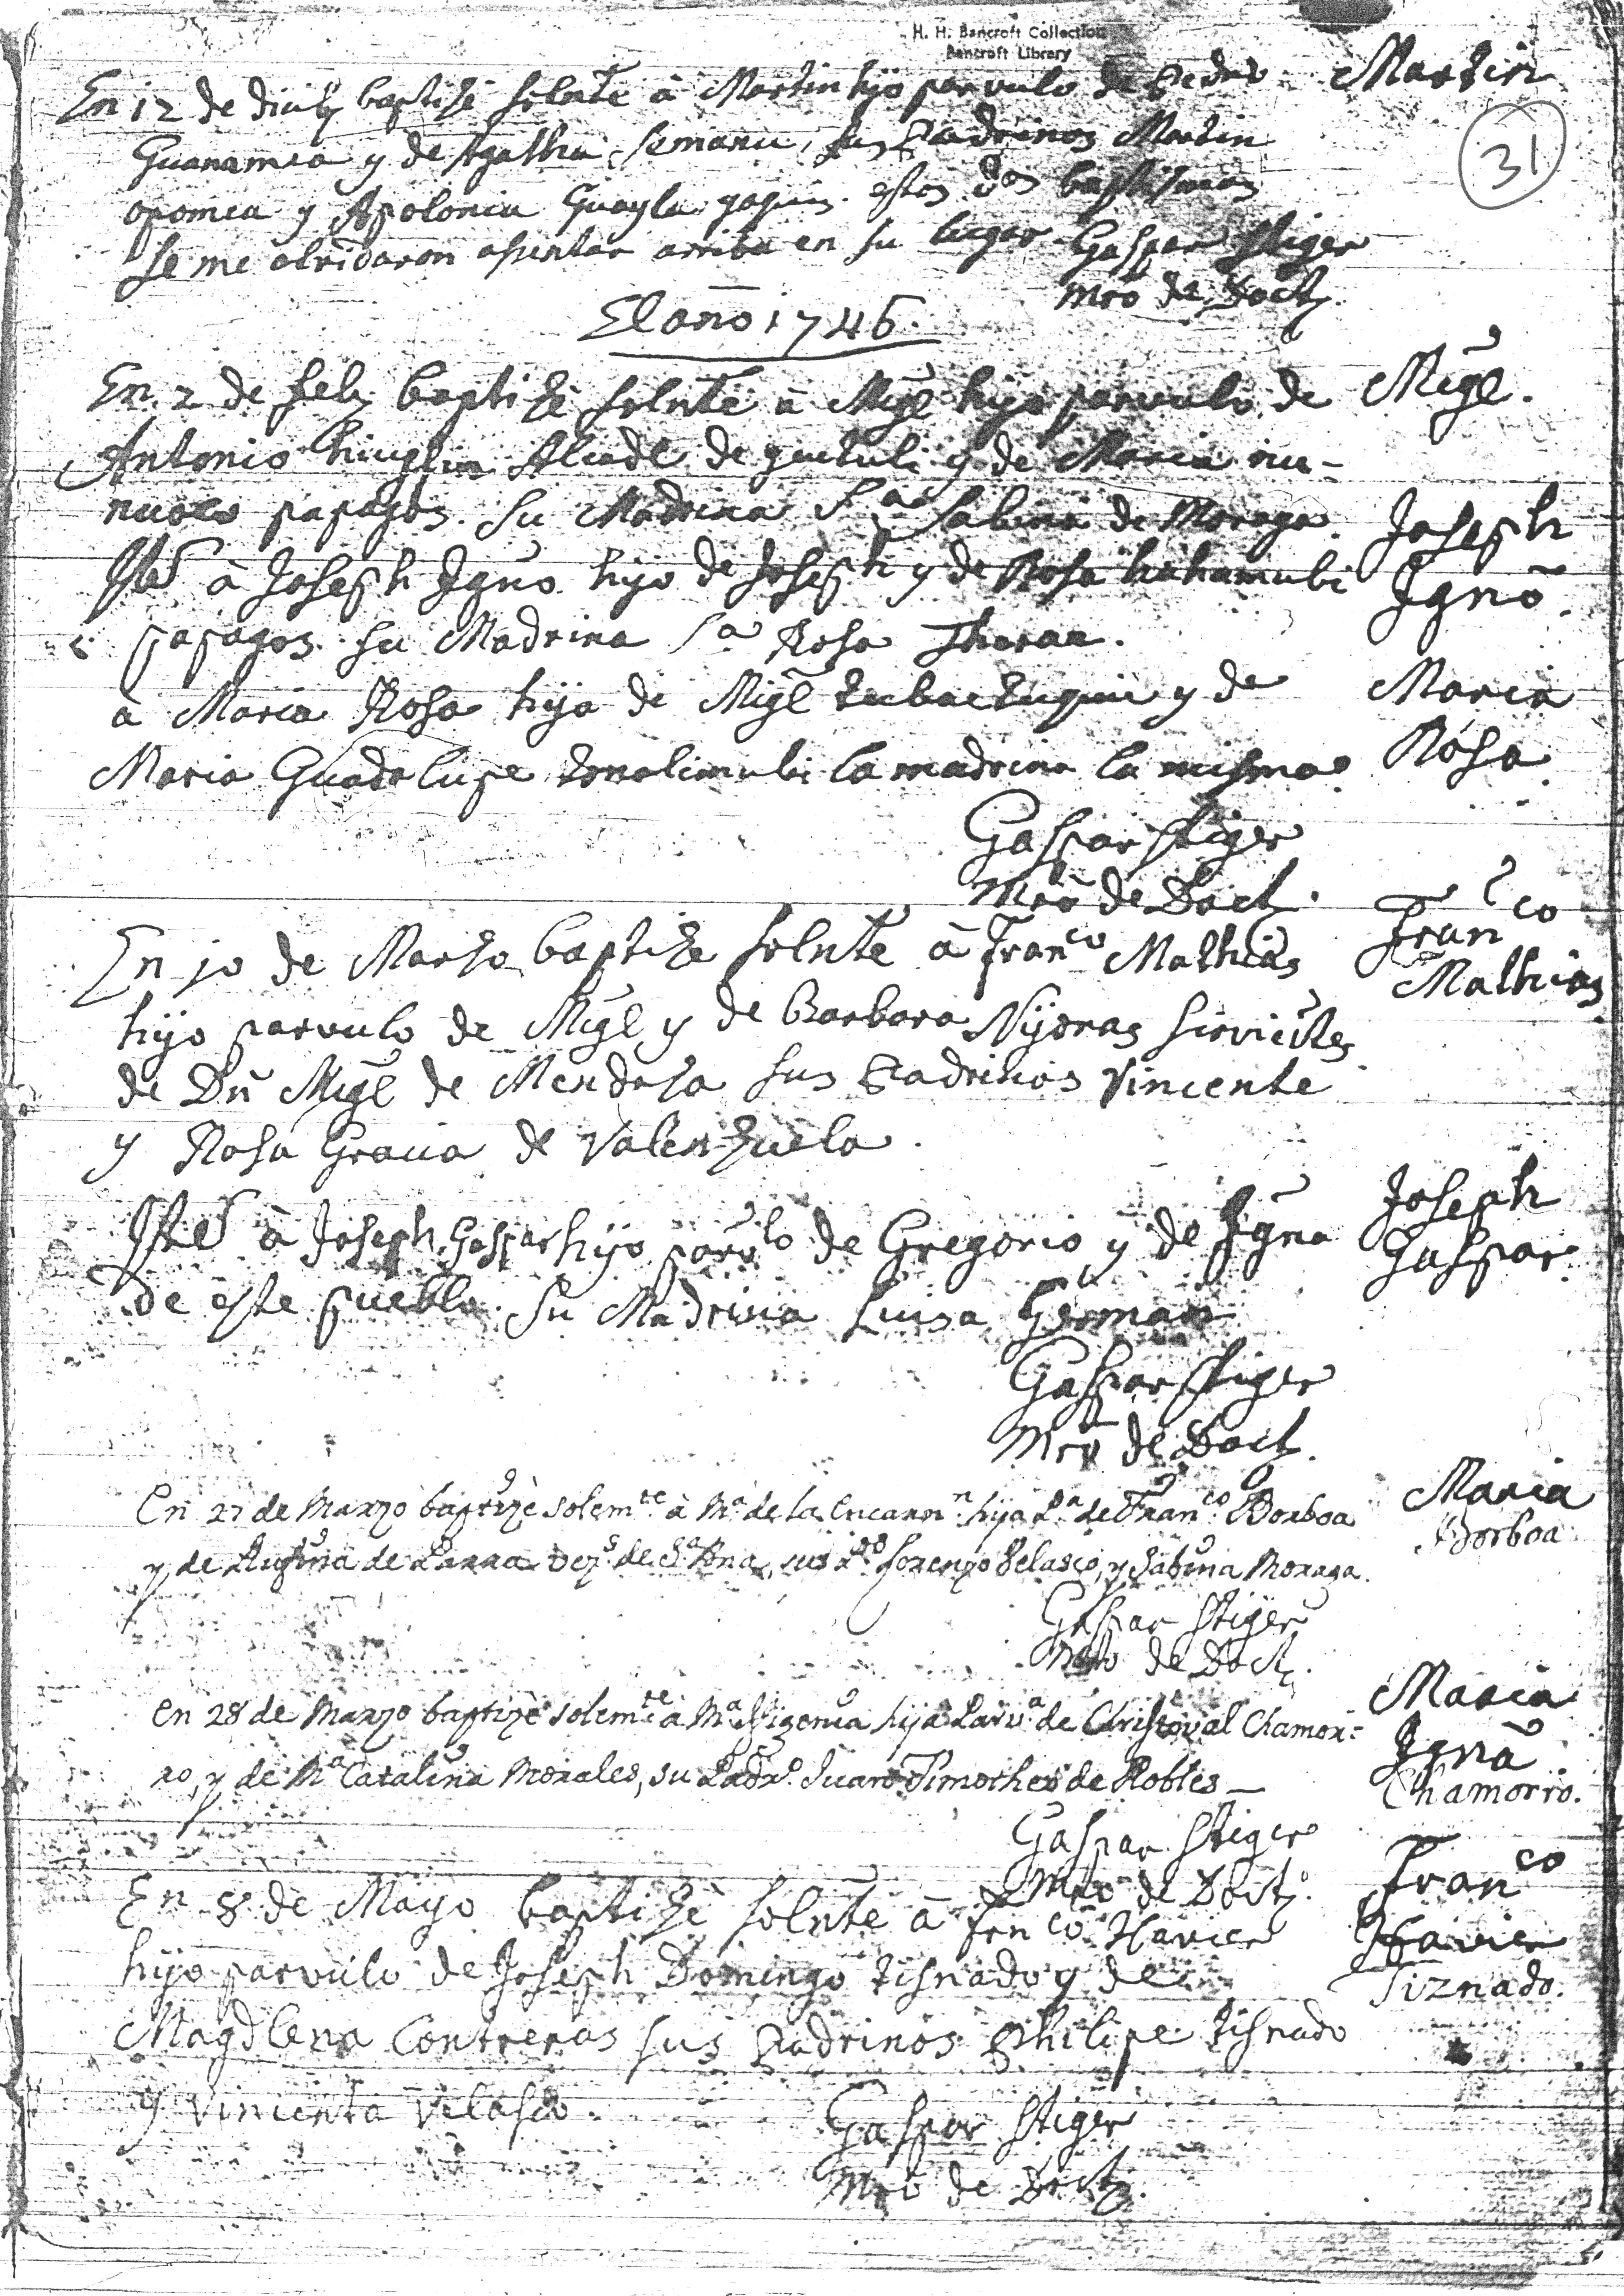 H. H. Bancroft Collection
Bancroft Library
31
En 12 de dicih baptisé solnte à Martin hijo parvulo de Pedro Martin
Guanamea y de Agatha semanu, sus Padrinos Martin
opomea y Apolonia Guayla papagos. estos dos baptismos
se me olvidaron apuntar arriba en su lugar Gaspar Stiger
Mro de Doct.
El año 1746.
En 2 de feb baptizè solnte à Migl hijo parvulo de Migl.
Antonio Alcade de y de Maria nu-
nuoco papagos. su Madrina Sa Sabina de Moraga.
Ite à Joseph Igno hijo de Joseph y de Rosa Joseph Igno.
papagos. su Madrina Sa Rosa
à Maria Rosa hija de Migl y de Maria
Maria Guadalupe la madrina la misma Rosa
Gaspar Stiger
Mro de Doct.
En 10 de Marzo baptize solnte à Franco Mathias Franco Mathias
hijo parvulo de Migl y de Barbara Nijoras sirvietes
de Dn Migl de Mendosa sus Padrinos Vincente
y Rosa Gracia de Valenzuela.
Ite à Joseph Gaspar hijo parvlo de Gregorio y de Igna Joseph Gaspar
de este pueblo. Su Madrina Luisa German
Gaspar Stiger
Mro de Doct.
En 27 de Marzo baptizè solemte à Ma de la Encarnn hija Pa de Franco Borboa Maria Borboa
y de Agustina de Parra Vezs de Sta Ana, sus Ps Lorenzo Velasco, y Sabina Moraga.
Gaspar Stiger
Mro de Doct.
En 28 de Marzo baptizè solemte à Ma Ifigenia hija Parva de Christoval Chamor- Maria Igna
ro, y de Ma Catalina Morales, su Padro Juan Timotheo de Robles— Chamorro.
Gaspar Stiger
Mro de Doct.
En 8 de Mayo baptizè solnte à Franco Xavier Franco Xavier
hijo parvulo de Joseph Domingo tisnado y de Tiznado.
Magdlena Contreras sus Padrinos Philipe tisnado
y Vincenta Velasco.
Gaspar Stiger
Mro de Doct.